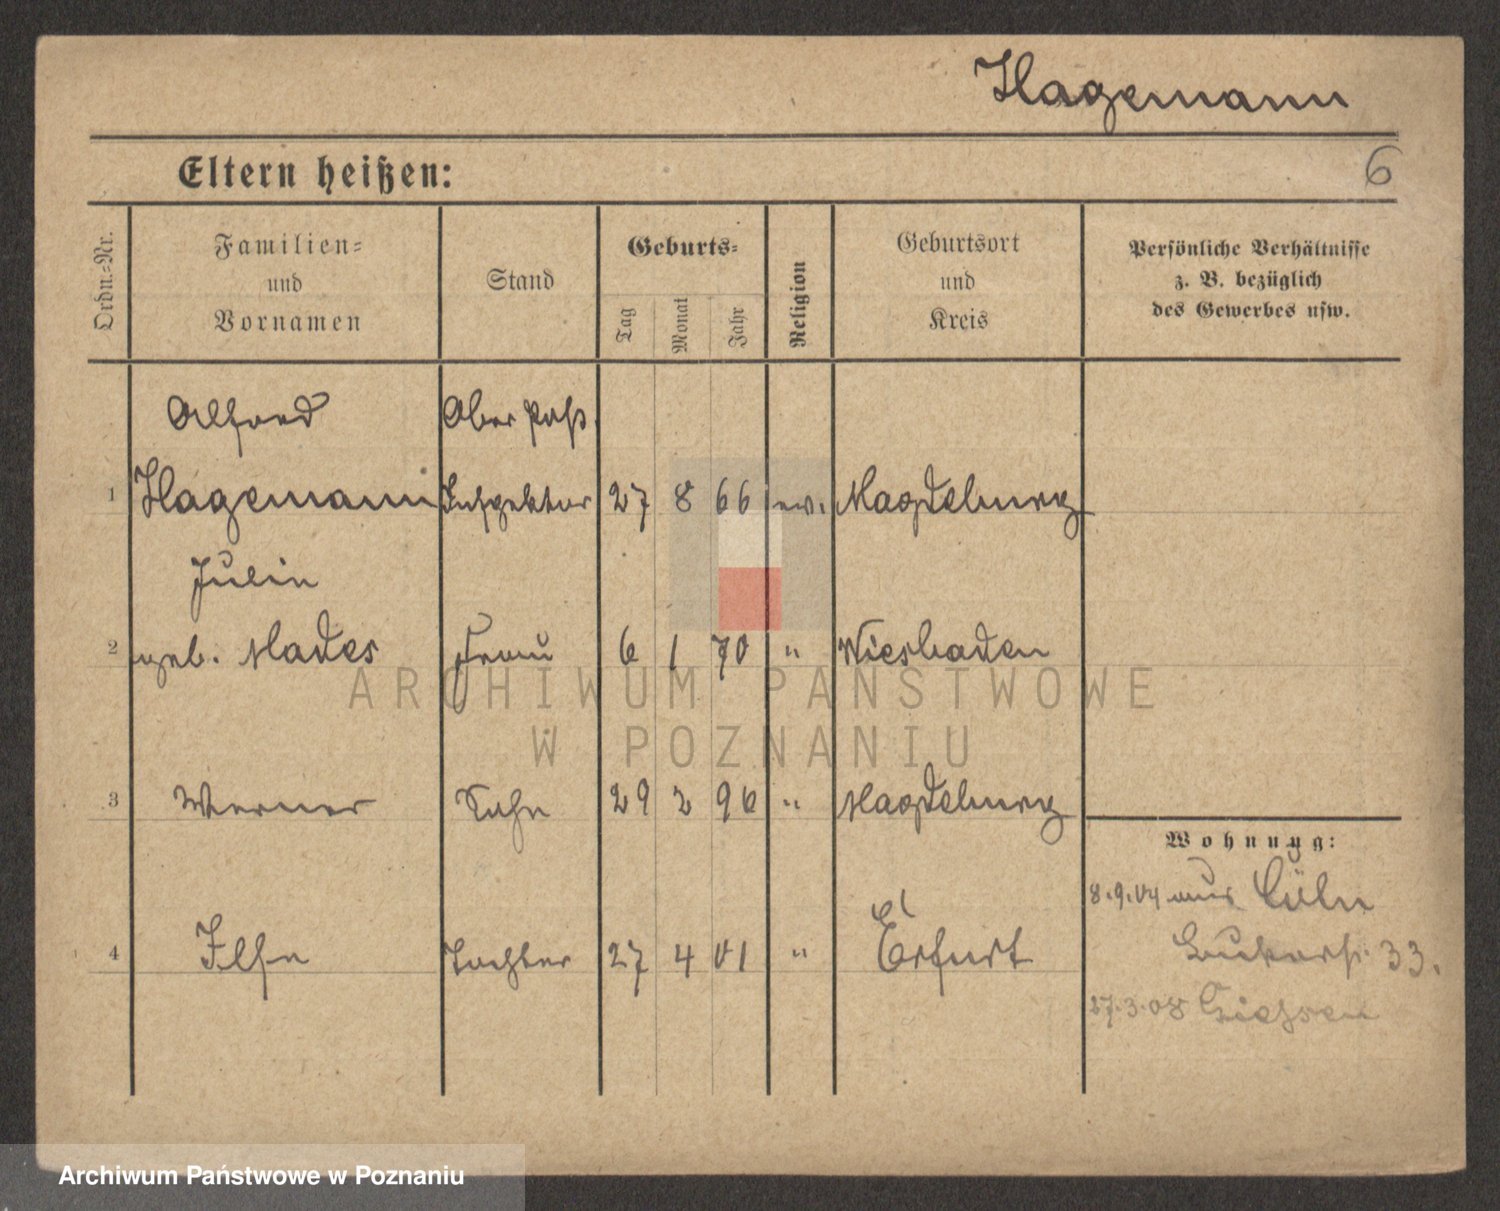 Hagemann
Eltern heißen:
6
Ordn.=Nr.
Familien=
und
Vornamen
Stand
Geburts=
Tag
Monat
Jahr
Religion
Geburtsort
und
Kreis
Persönliche Verhältnisse
z. B. bezüglich
des Gewerbes usw.
Alfred
Ober Post.
1 Hagemann Inspektor 27 8 66 ev. Magdeburg
Julie
2 geb. Mades Frau 6 1 70 " Wiesbaden
3 Werner Sohn 29 2 96 " Magdeburg
Wohnung:
8.9.04 aus Cöln
4 Ilse Tochter 27 4 01 " Erfurt
33.
27.3.08 Giessen
ARCHIWUM PAŃSTWOWE
W POZNANIU
Archiwum Państwowe w Poznaniu